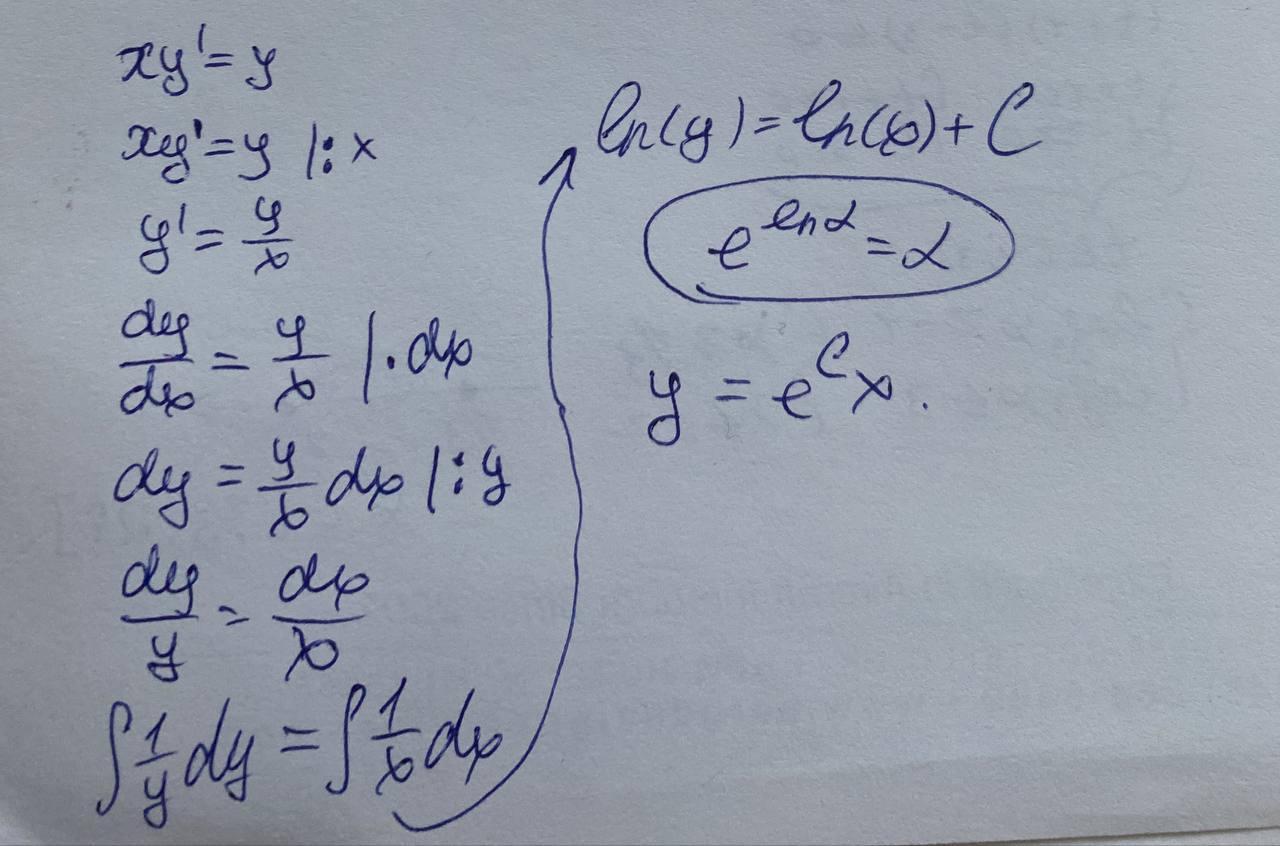 xy' = y
xy' = y |:x
y' = y/x
dy/dx = y/x |·dx
dy = y/x dx |:y
dy/y = dx/x
∫ 1/y dy = ∫ 1/x dx
ln(y) = ln(x) + C
e^{ln α} = α
y = e^C x.